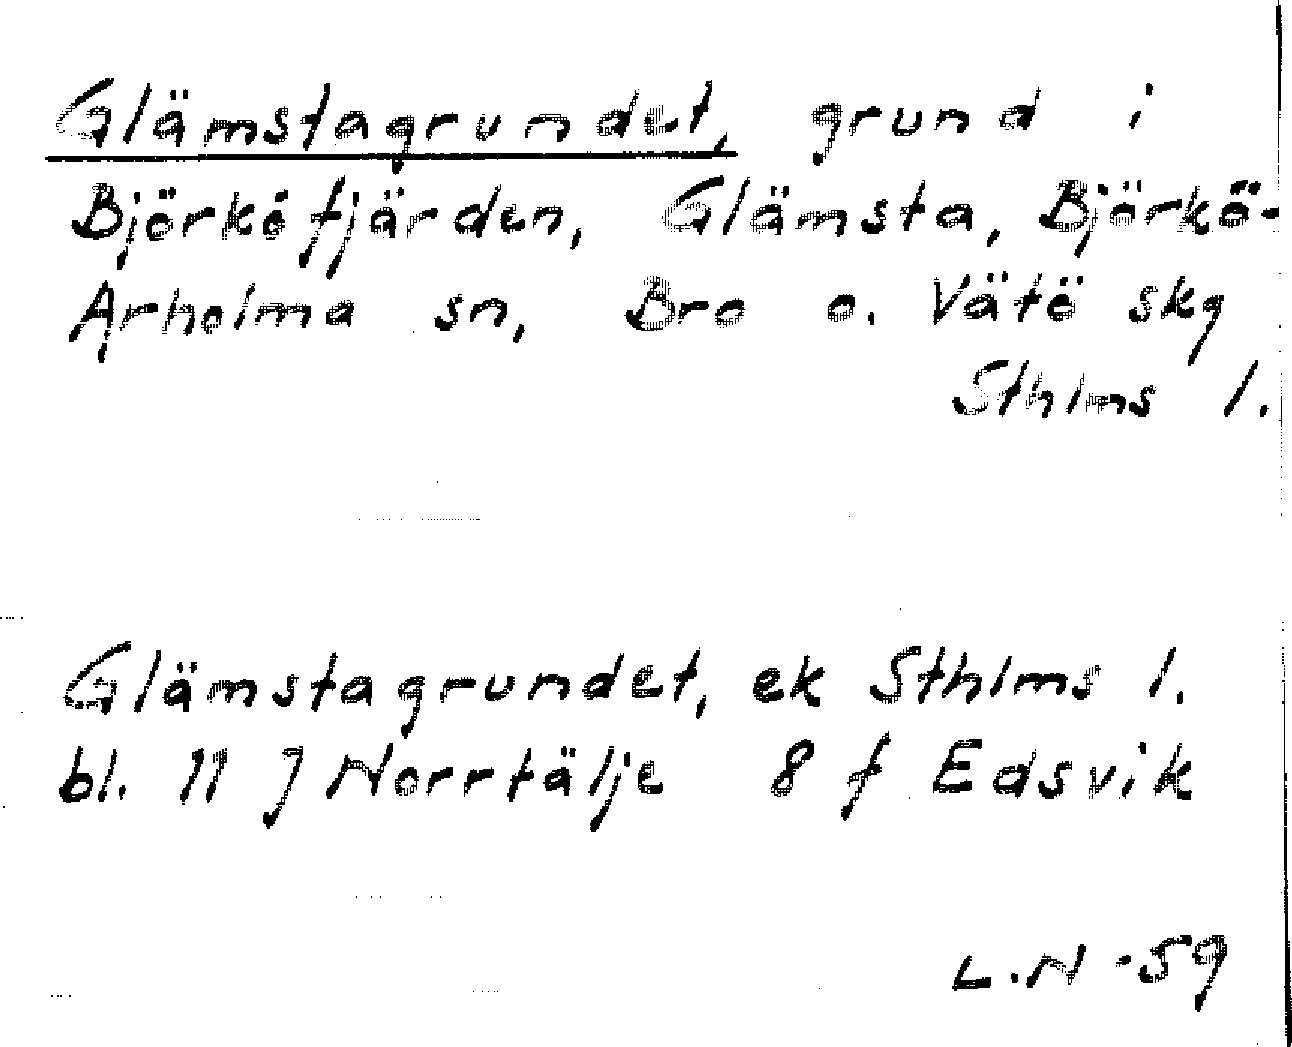 Glämstagrundet, grund i
Björköfjärden, Glämsta, Björkö-
Arholma sn, Bro o. Vätö skg
Sthlms l.
Glämstagrundet, ek Sthlms l.
bl. 11 J Norrtälje 8 f Edsvik
L.N -59